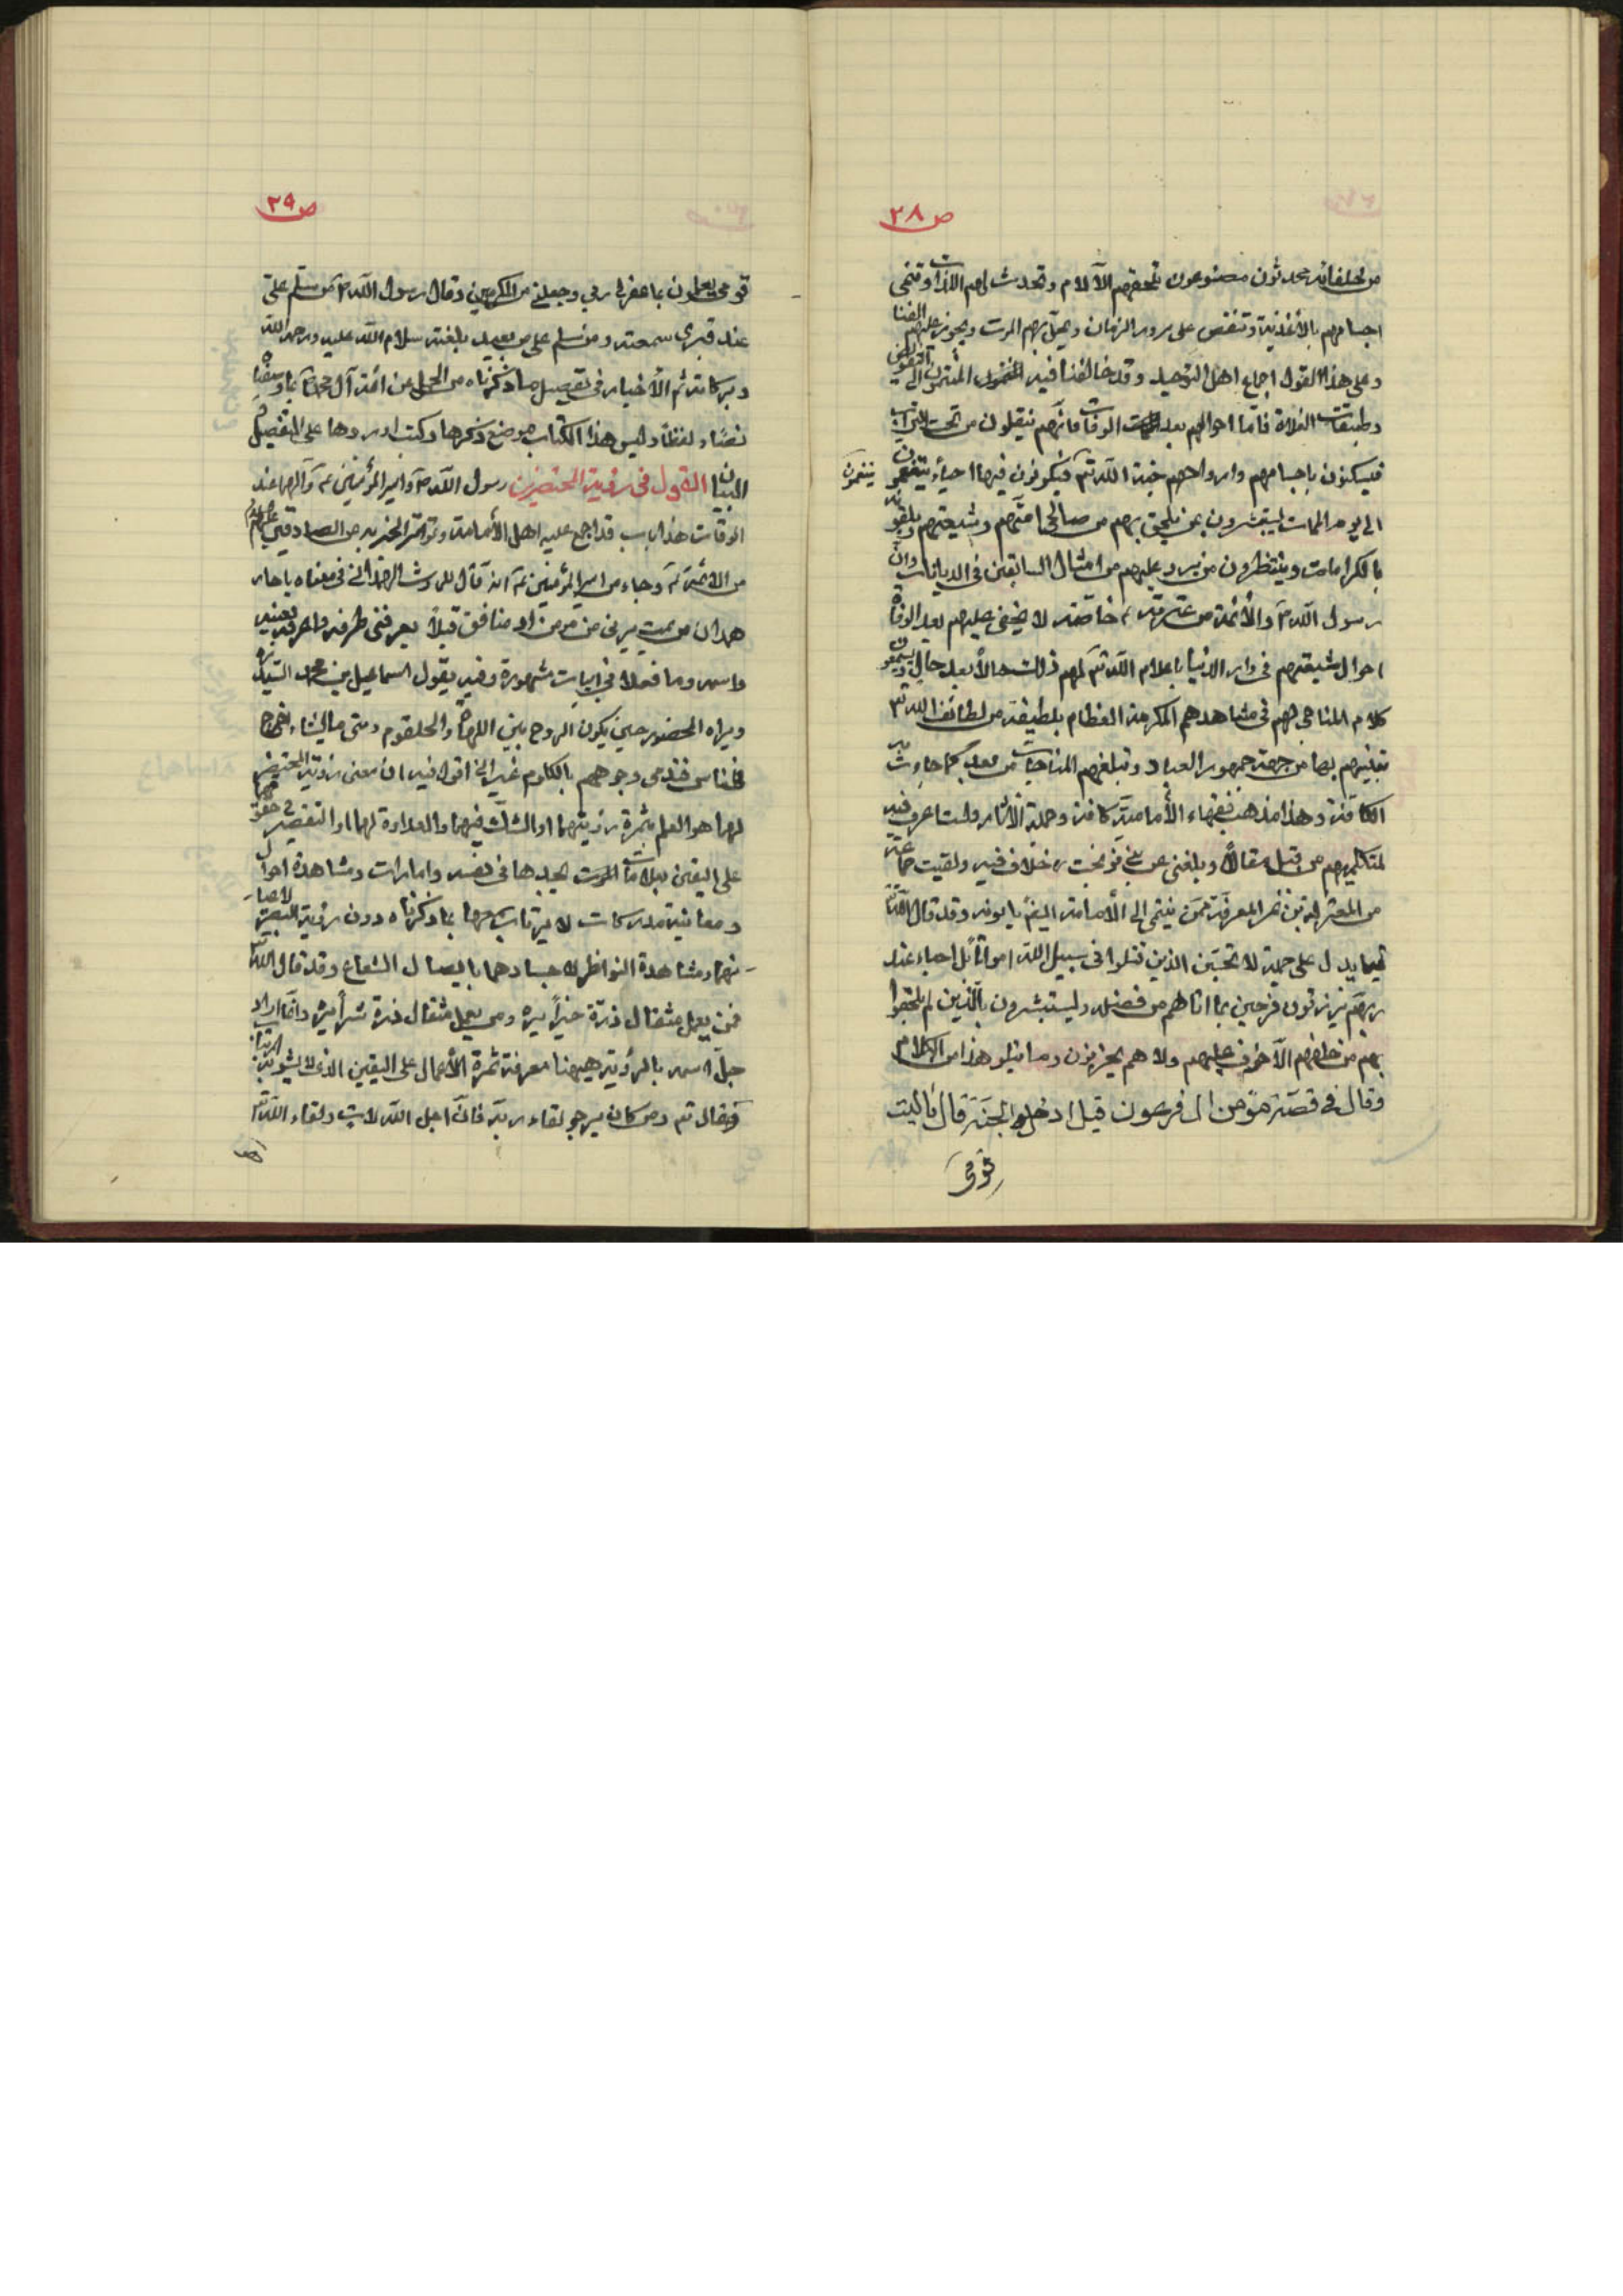 ص ٣٨
من خلفائه محدثون مصنوعون تلحقهم الآلام وتحدث لهم اللذات وتنمى
اجسامهم بالأغذية وتنقص على مرور الزمان ويحل بهم الموت ويجوز عليهم الفنا
وعلى هذا القول اجماع اهل التوحيد وقد خالفنا فيه المنتمون الى التفويض
وطبقات الغلاة فاما احوالهم بعد الوفات فانهم ينقلون من تحت التراب
فيسكنون باجسامهم وارواحهم جنة الله تم فيكونون فيها احياء يتنعمون
يتنعمون
الى يوم الممات يستبشرون بمن يلحق بهم من صالحى امتهم وشيعتهم ويلقونه
بالكرامات وينتظرون من يرد عليهم من امثال السابقين فى الديانات وان
رسول الله ص والأئمة من عترته خاصته لا يخفى عليهم بعد الوفاة
احوال شيعتهم فى دار الدنيا باعلام الله تم لهم ذلك حالاً بعد حال ويسمعون
كلام المناجى لهم فى مشاهدهم المكرمة العظام بلطيفة من لطائف الله تم
بها من جهة جمهور العباد وتبلغهم المناجات من بعد كما جاءت به
الكافة وهذا مذهب فقهاء الأمامية كافة وحملة الآثار ولست اعرف فيه
لمتكلميهم من قبل مقالاً وبلغنى عن بنى نوبخت ره خلاف فيه ولقيت جماعة
من عن المعرفة ممن ينتمى الى الأمامة ايضاً يابونه وقد قال الله
فيما يدل على جملة لا تحسبن الذين قتلوا فى سبيل الله امواتاً بل احياء عند
ربهم يرزقون فرحين بما اتاهم من فضله ويستبشرون بالذين لم يلحقوا
بهم من خلفهم الا خوف عليهم ولا هم يحزنون وما يتلو هذا من الكلام
وقال فى قصة مؤمن ال فرعون قيل ادخل الجنة قال ياليت
قومى
ص ٣٩
قومى يعلمون بما غفر لى ربي وجعلنى من المكرمين وقال رسول الله ص من سلم على
عند قبرى سمعته ومن سلم على من بعيد بلغته سلام الله عليه ورحمة الله
وبركاته ثم الأخبار فى تفصيل ما ذكرناه من الجمل عن ائمة آل محمد بما وصفناه
نصاً ولفظاً وليس هذا الكتاب موضع ذكرها وكنت اوردها على التفصيل
والبيان القول فى رؤية المحتضرين رسول الله ص وامير المؤمنين عم عند
الوفات هذا باب قد اجمع عليه اهل الأمامة وتواتر الخبر به عن الصادقين عليهم السلام
من الأئمة عم وجاء من امير المؤمنين عم انه قال للحارث الهمدانى فى معناه يا حار
همدان من يمت يرنى من مومن او منافق قبلاً يعرفنى طرفه واعرفه بعينه
واسمه وما فعلا فى ابيات مشهورة وفيه يقول اسماعيل بن محمد السيد ره
ويراه المحضور حين يكون الروح بين اللهاة والحلقوم ومتى ما يشاء اخرج
للناس فتدمى وجوههم بالكلوم غير انى اقول فيه ان معنى رؤية المحتضر
لهما هو العلم بثمرة ولايتهما او الشك فيهما والعداوة لهما او التقصير فى حقوقهما
على اليقين بعلامات يجدها فى نفسه وامارات ومشاهدة احوال
ومعاينة مدركات لا يرتاب معها بما ذكرناه دون رؤية البصر لاعيانهما
ومشاهدة النواظر لاجسادهما باتصال الشعاع وقد قال الله
فمن يعمل مثقال ذرة خيراً يره ومن يعمل مثقال ذرة شراً يره وانما اراد
جل اسمه بالرؤية ههنا معرفة ثمرة الأعمال على اليقين الذى لا يشوبه ارتياب
وقال تم ومن كان يرجو لقاء ربه فان اجل الله لات ولقاء الله